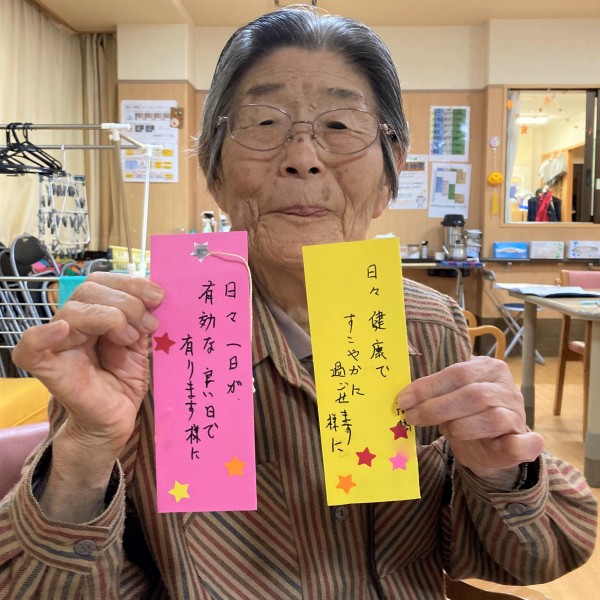 日々一日が、
有効な良い日で
有ります様に
日々健康で
すこやかに
過ごせます
様に